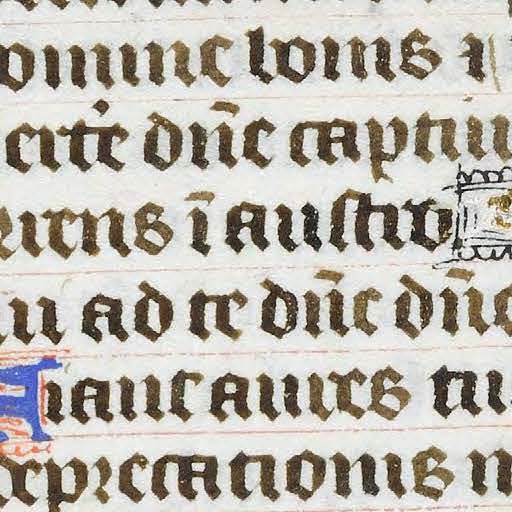 omine bonis
erte dn̄e captiu
rrens ī austro
ui ad te dn̄e dn̄e
Fiant aures tu
deprecationis m